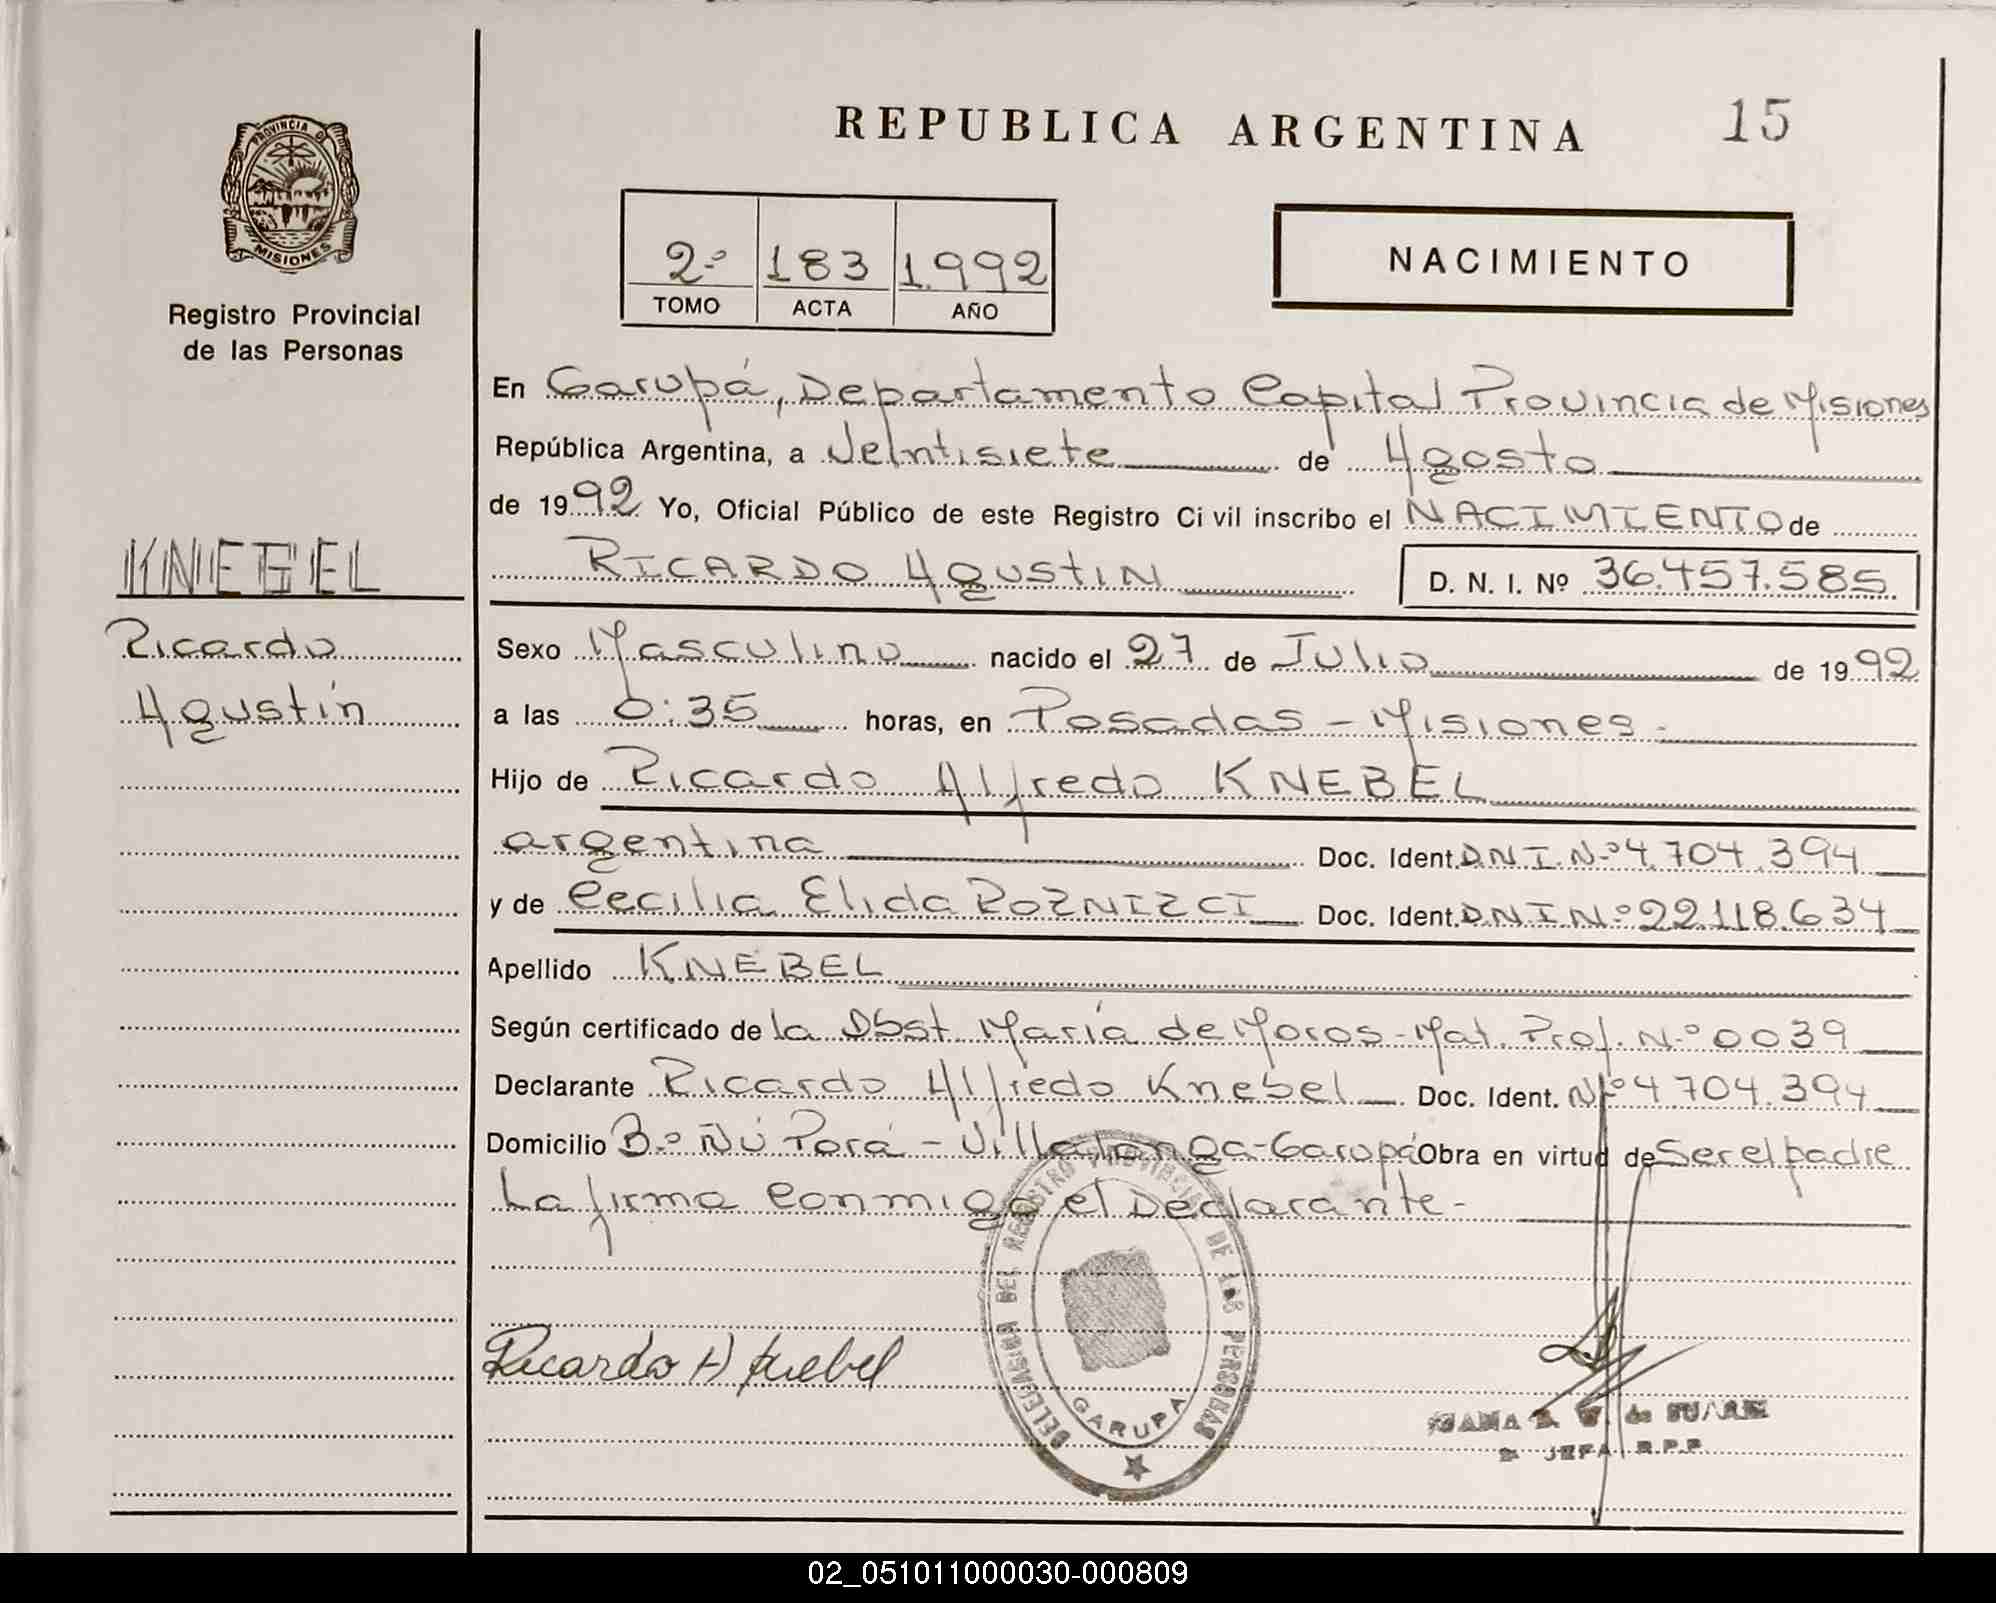 REPUBLICA ARGENTINA
15
PROVINCIA DE
MISIONES
Registro Provincial
de las Personas
2º 183 1.992
TOMO ACTA AÑO
NACIMIENTO
En Garupá, Departamento Capital Provincia de Misiones
República Argentina, a Veintisiete de Agosto
de 1992 Yo, Oficial Público de este Registro Civil inscribo el NACIMIENTO de
KNEBEL
RICARDO AGUSTIN D. N. I. Nº 36.457.585
Ricardo
Agustín
Sexo Masculino nacido el 27 de Julio de 1992
a las 0:35 horas, en Posadas - Misiones.
Hijo de Ricardo Alfredo KNEBEL
argentina Doc. Ident. D.N.I. Nº 4.704.394
y de Cecilia Elida ROZNIZCI Doc. Ident. D.N.I Nº 22.118.634
Apellido KNEBEL
Según certificado de la Obst. María de Moros - Mat. Prof. Nº 0039
Declarante Ricardo Alfredo Knebel Doc. Ident. Nº 4.704.394
Domicilio Bº Ñú Porá - Villalonga - Garupá Obra en virtud de Ser el padre
La firma conmigo el Declarante.-
DELEGASION DEL REGISTRO PROVINCIAL DE LAS PERSONAS
GARUPA
Ricardo A Knebel
de SUAREZ
JEFA R.P.P.
02_051011000030-000809